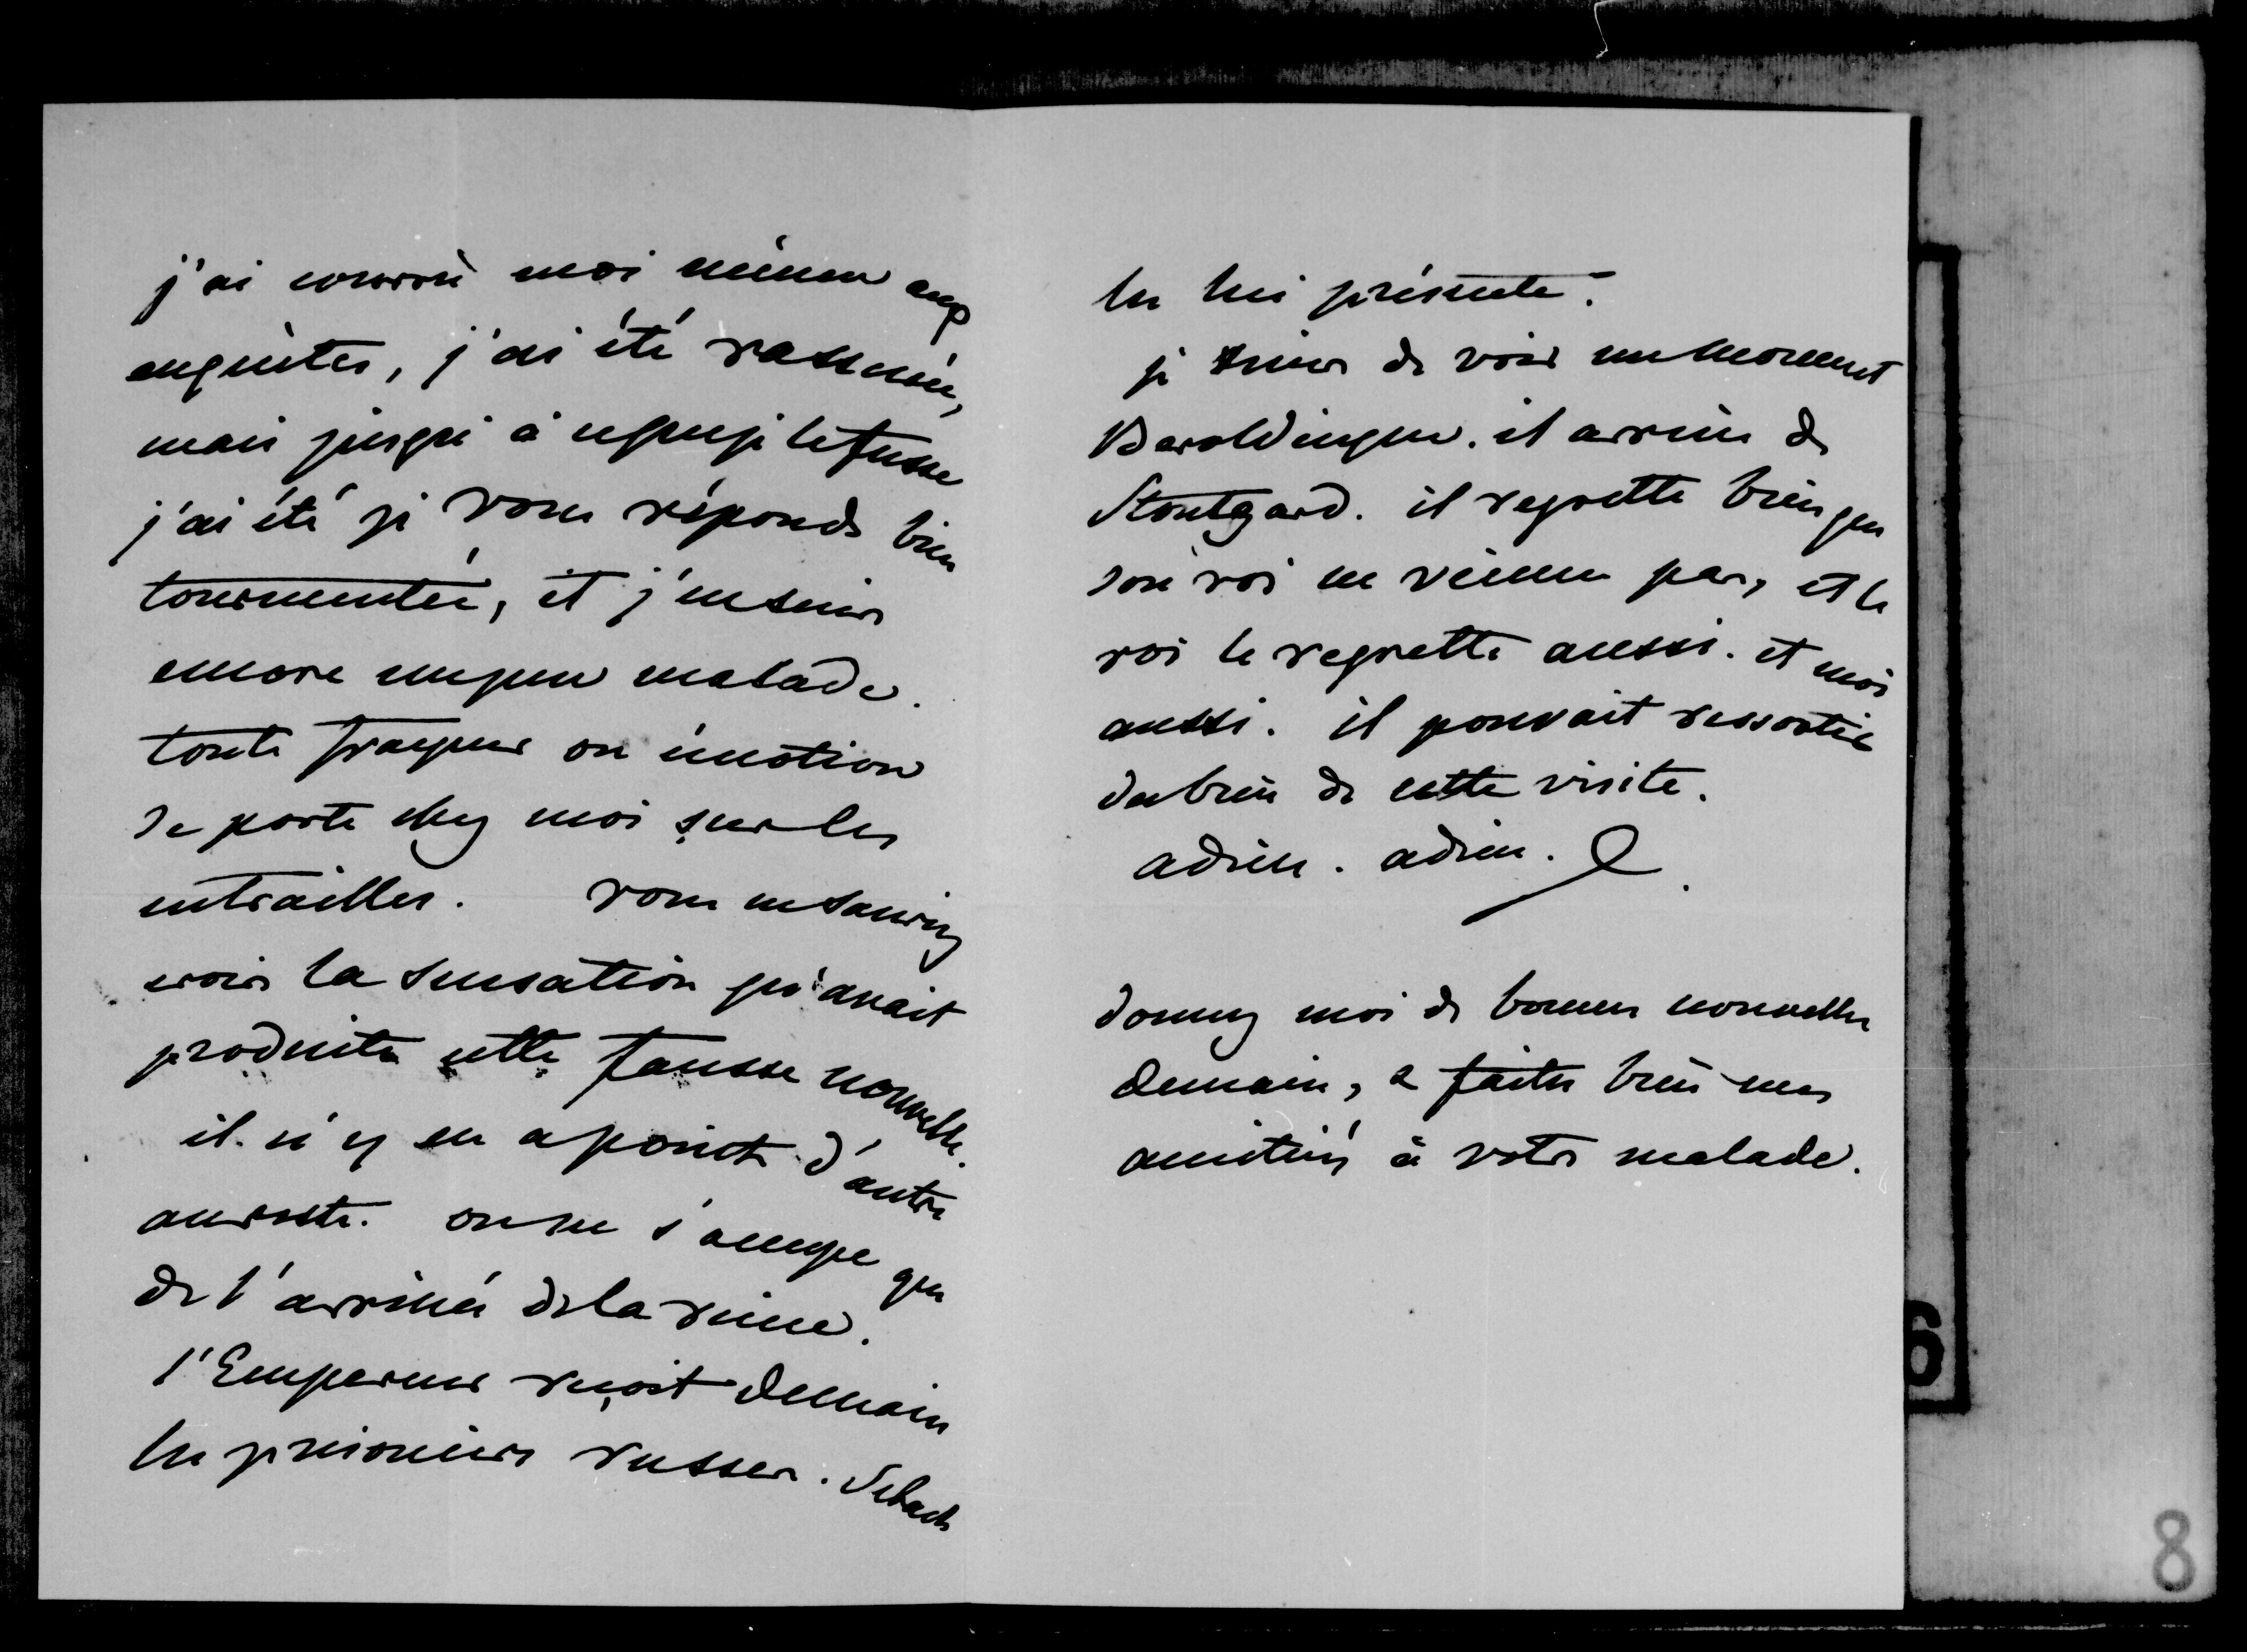 j'ai couru moi même aux
enquêtes, j'ai été rassurée,
mais jusqu'à ce que je le fusse
j'ai été je vous réponds bien
tourmentée, et j'en suis
encore un peu malade.
toute frayeur ou émotion
se porte chez moi sur les
entrailles. vous ne sauriez
croire la sensation qu'avait
produite cette fausse nouvelle.
il n'y en a point d'autre
au reste. on ne s'occupe que
de l'arrivée de la reine.
l'Empereur reçoit demain
les prisoniers russes. Sebach
les lui présente.
je viens de voir un moment
Beroldingen. il arrive de
Stoutgard. il regrette bien que
son roi ne vienne pas, et le
roi le regrette aussi. et moi
aussi. il pouvait ressortir
du bien de cette visite.
adieu. adieu.
donnez moi de bonnes nouvelles
demain, & faites bien mes
amitiés à votre malade.
6
8